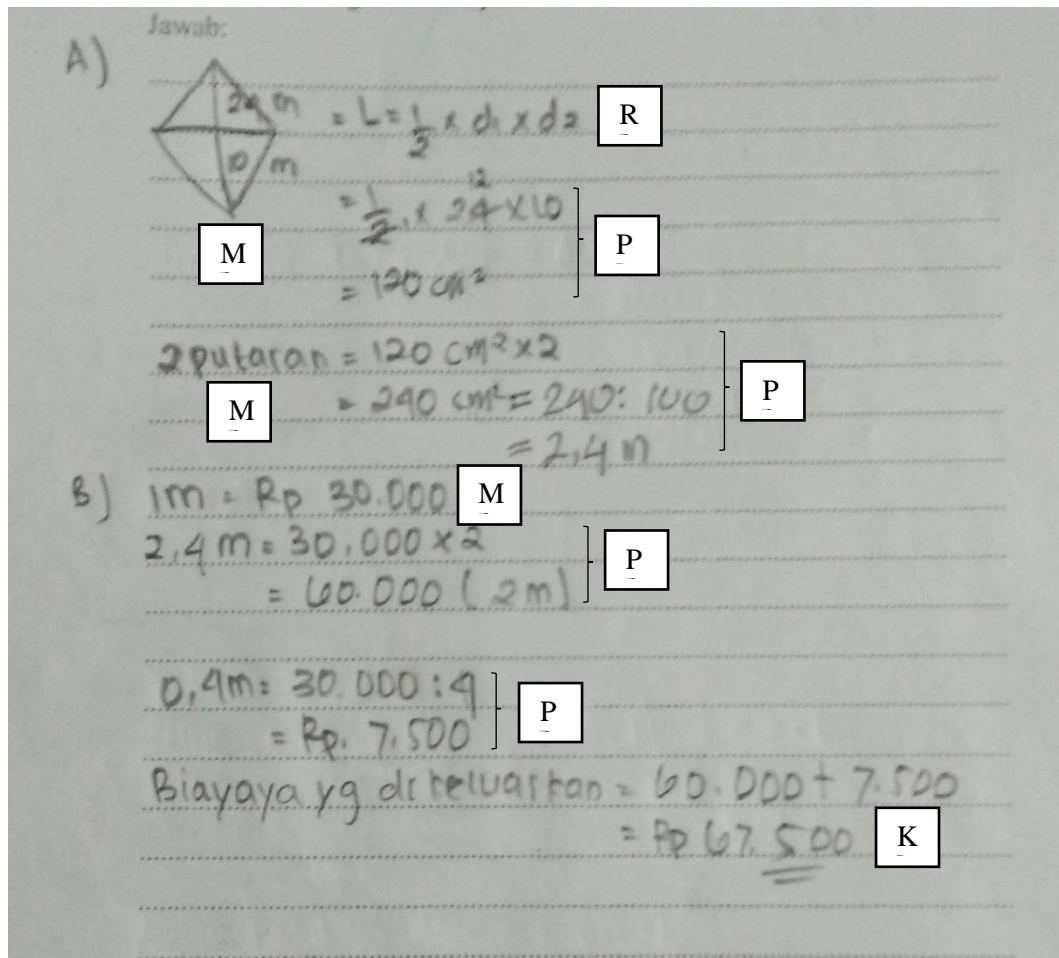 Jawab:
A)
24 m
10 m
= L = 1/2 x d1 x d2 R
12
= 1/2 x 24 x 10
M
P
= 120 cm²
2 putaran = 120 cm² x 2
M = 240 cm² = 240 : 100 P
= 2,4 m
B) 1m = Rp 30.000 M
2,4 m = 30.000 x 2
P
= 60.000 ( 2 m )
0,4m = 30.000 : 4
P
= Rp. 7.500
Biayaya yg di keluarkan = 60.000 + 7.500
= Rp 67.500 K